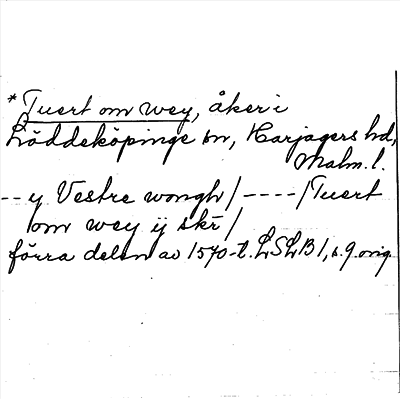 *Tuert om wey, åker i
Löddeköpinge sn, Harjagers hd,
Malm. l.
-- y Vestre wongh/----/Tuert
om wey ij skr/
förra delen av 1570-t. LSLB 1, s. 9 orig